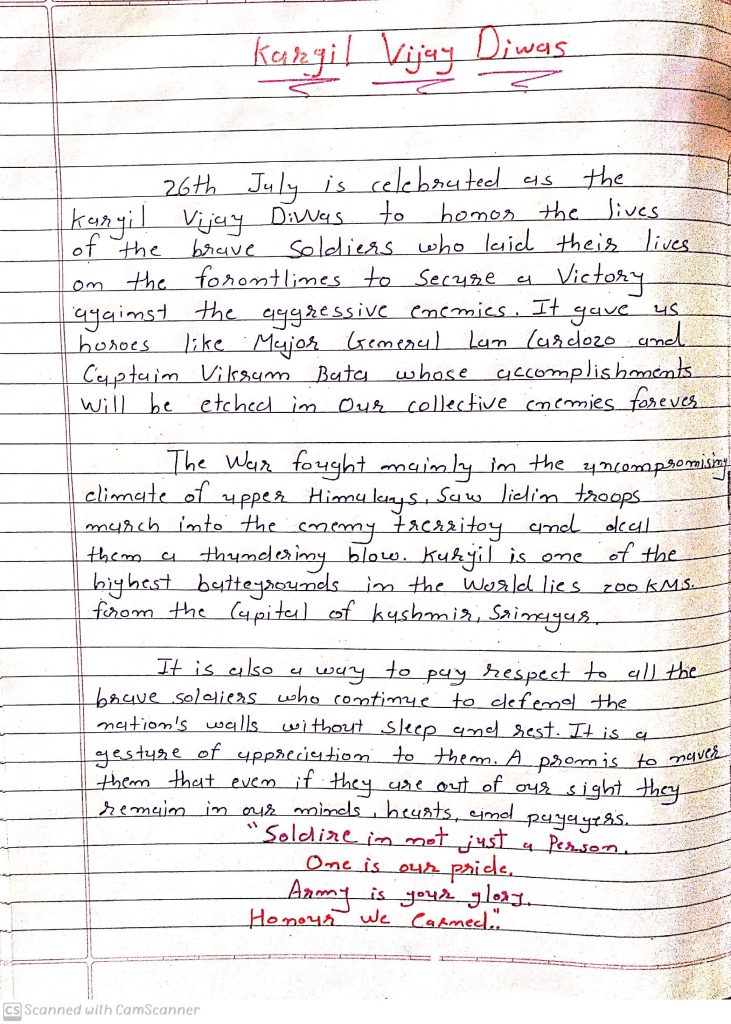 Kargil Vijay Diwas
26th July is celebrated as the
Kargil Vijay Diwas to honor the lives
of the brave soldiers who laid their lives
on the forontlines to Secure a Victory
against the aggressive enemies. It gave us
horoes like Major General Lan Cardozo and
Captain Vikram Bata whose accomplishments
will be etched in Our collective enemies forever
The War fought mainly in the uncompromising
climate of upper Himalays, Saw lidin troops
march into the enemy trerritoy and deal
them a thundering blow. Kargil is one of the
highest battegrounds in the World lies 200 KMS.
from the Capital of kashmir, Srinagar.
It is also a way to pay respect to all the
brave soldiers who continue to defend the
nation's walls without sleep and rest. It is a
gesture of appreciation to them. A promis to naver
them that even if they are out of our sight they
remain in our minds, hearts, and payayers.
"Soldire in not just a Person.
One is our pride.
Army is your glory.
Honour We Carned."
CS Scanned with CamScanner